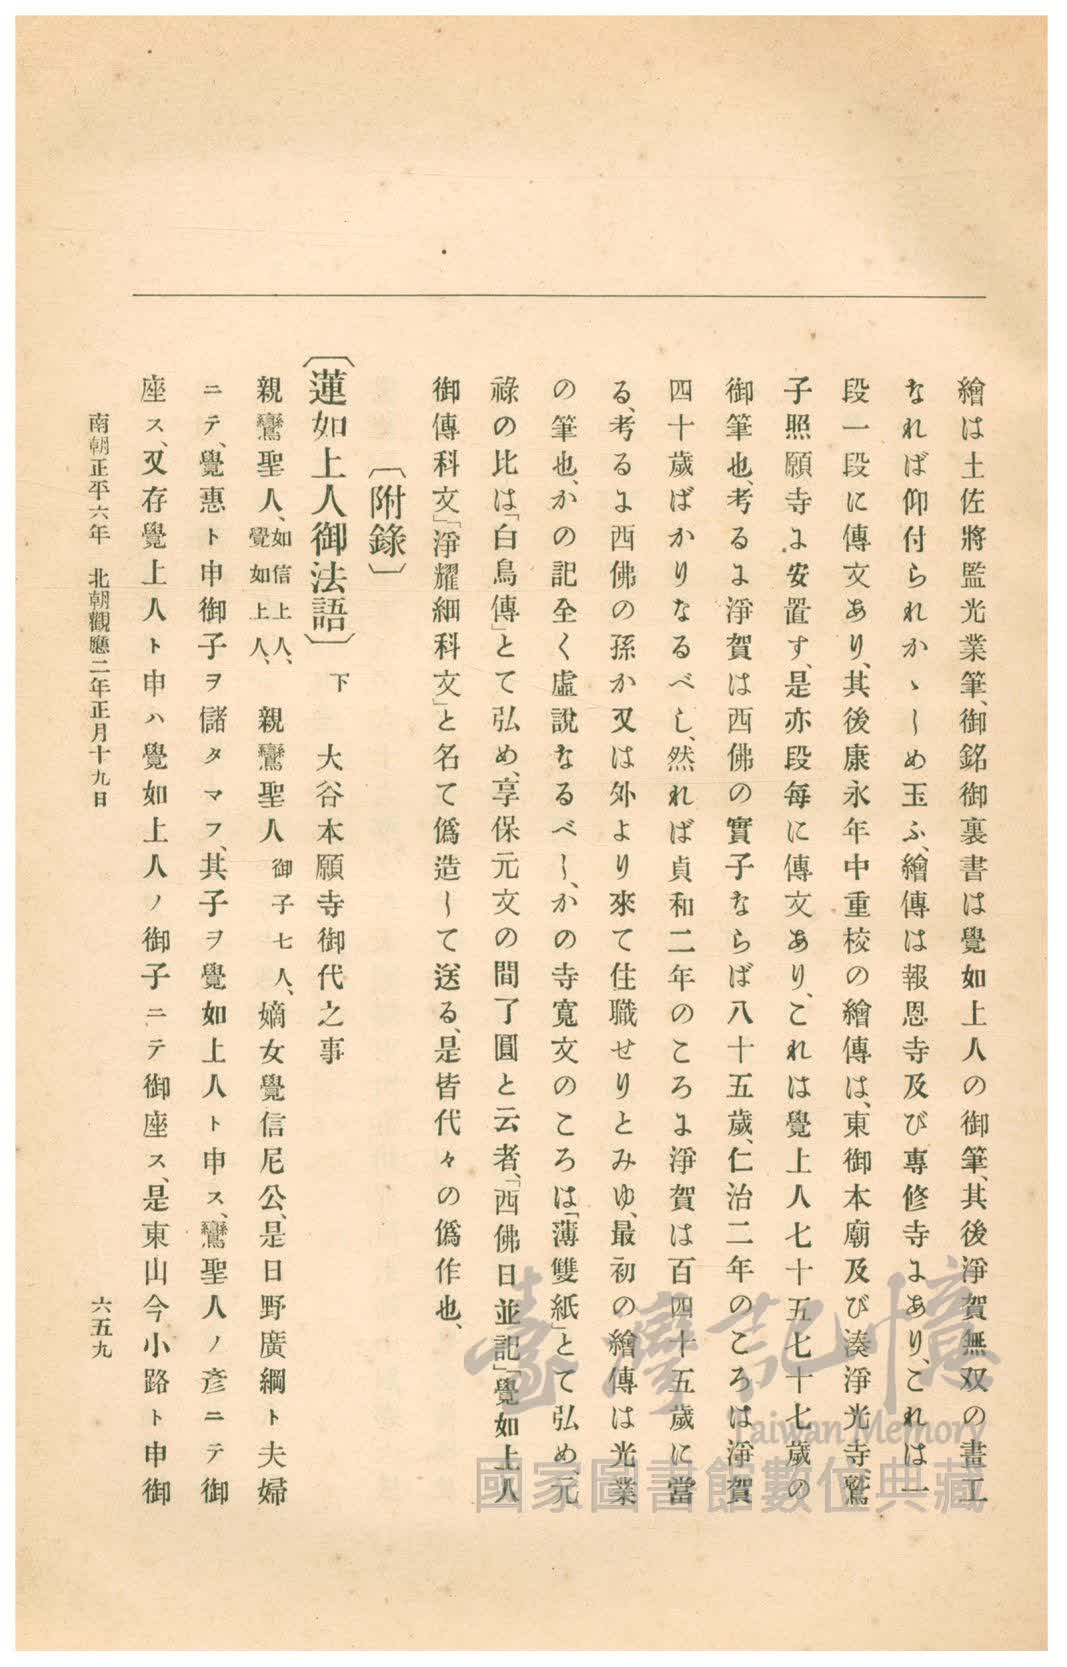 繪は土佐將監光業筆、御銘御裏書は覺如上人の御筆、其後淨賀無双の畫工
なれば仰付られかゝしめ玉ふ、繪傳は報恩寺及び專修寺にあり、これは一
段一段に傳文あり、其後康永年中重校の繪傳は、東御本廟及び湊淨光寺、鷲
子照願寺に安置す、是亦段每に傳文あり、これは覺上人七十五七十七歲の
御筆也、考るに淨賀は西佛の實子ならば八十五歲、仁治二年のころは淨賀
四十歲ばかりなるべし、然れば貞和二年のころに淨賀は百四十五歲に當
る、考るに西佛の孫か又は外より來て住職せりとみゆ、最初の繪傳は光業
の筆也、かの記全く虛說なるべし、かの寺寬文のころは「薄雙紙」とて弘め、元
祿の比は「白鳥傳」とて弘め、享保元文の間了圓と云者、「西佛日並記」「覺如上人
御傳科文」「淨耀細科文」と名て僞造して送る、是皆代々の僞作也、
〔附錄〕
〔蓮如上人御法語〕下　大谷本願寺御代之事
親鸞聖人、如信上人、覺如上人、親鸞聖人御子七人、嫡女覺信尼公、是日野廣綱ト夫婦
ニテ、覺惠ト申御子ヲ儲タマフ、其子ヲ覺如上人ト申ス、鸞聖人ノ彥ニテ御
座ス、又存覺上人ト申ハ覺如上人ノ御子ニテ御座ス、是東山今小路ト申御
南朝正平六年　北朝觀應二年正月十九日
六五九
臺灣記憶
Taiwan Memory
國家圖書館數位典藏